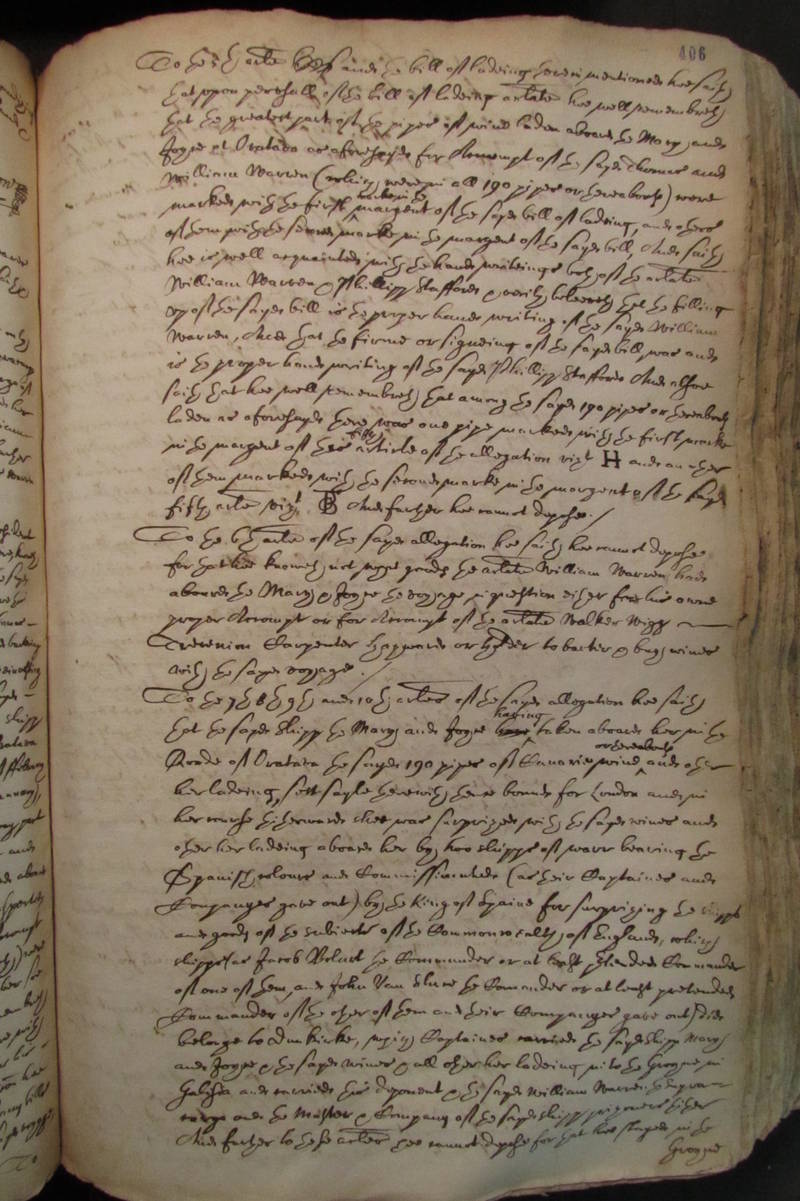 406
To the 5th arte and the bill of ladeing therein mentioned hee saith
that uppon perusall of the bill of ladeing arlate hee well remembreth
that the greatest part of the pipes of wine laden aboard the Mary and
Joyce at Oratava as aforesayd for Accompt of the sayd Thomas and
William Warren (which were in all 190 pipes or thereabouts) were
marked with the first marke in the margent of the sayd bill of ladeing, and others
of them with the second marke in the margent of the sayd bill, And saith
hee is well acquainted with the hands writeings both of the arlate
William Warren & Phillipp Stafford & verily beleeveth that the filling
up of the sayd bill is the proper hand writing of the sayd William
Warren, And that the firme or signeing of the sayd bill was and
is the proper hand writing of the sayd Phillipp Stafford And alsoe
saith that hee well remembreth that among the sayd 190 pipes or thereabouts
laden as aforesayd there was one pipe marked with the first marke
in the margent of this fifth article of the allegation vizt H and an other
of them marked with the second marke in the margent of the sayd
fifth arte vizt B And farther hee cannot depose./
To the 6th arte of the sayd allegation hee saith hee cannot depose
for that hee knoweth not what goods the arlate William Warren had
aboard the Mary & Joyce the voyage in question either for his owne
proper Accompt or for Accompt of the arlate Walker Wigg
Carpenter Hayward or to barter & buy wines
with the sayd voyage./
To the 7th 8th 9th and 10th artes of the sayd allegation hee saith
that the sayd shipp the Mary and Joyce having taken aboard her in the
Roade of Oratava the sayd 190 pipes of Canarie wine or thereabouts and other
her ladeing, sett sayle therewith thence bound for London and in
her course hitherwards shee was surprized with the sayd wines and
other her ladeing aboard her by two shipps of warr bearing the
Spanish colours and Commissionated (as their Captaines and
Companyes gave out) by the King of Spaine for surprizing the shipps
and goods of the subiects of the Commonwealth of England, which
shipps (as Jacob the Commander or at least pretended Commander
of one of them, and John Van the Comander or at least pretended
Commander of the other of them and their Companyes gave out) did
belong to dunkirke, which Captaines carried the sayd shipp Mary
and Joyce & the sayd wines & all other her ladeing into the Groyne in
Galisia and carried this deponent & the sayd William Warren
and the Master & Company of the sayd shipp prisoners thither
And farther to these artes hee cannot depose for that hee stayed in the
Groyne